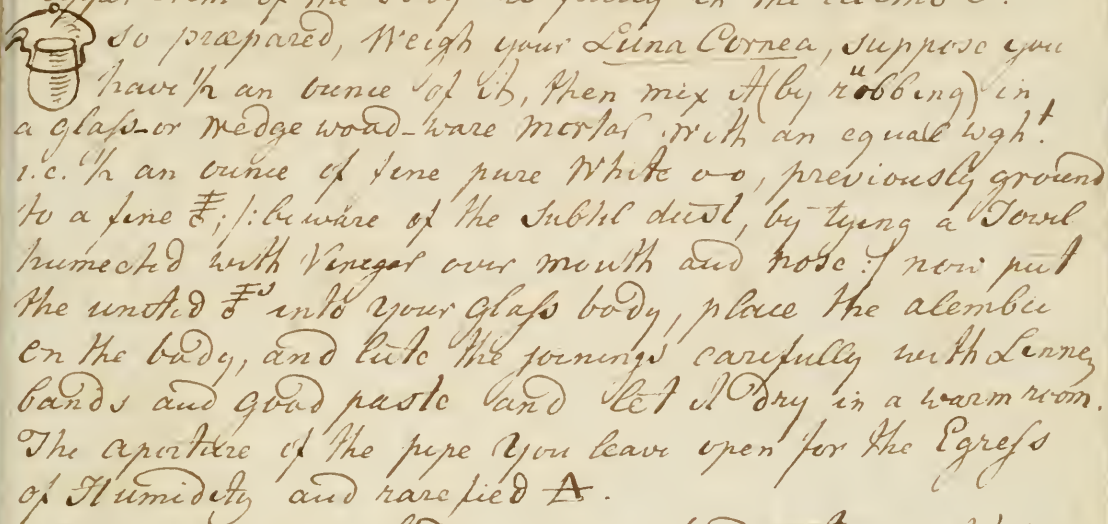 so præpared, Weigh your Luna Cornea, suppose you
have ½ an ounce of it, then mix it (by rübbing) in
a glaſs-or Wedgewood-ware mortar with an equal wght.
i.e. ½ an ounce of fine pure White o-o, previously ground
to a fine ; /: beware of the Subtil dust, by tying a Towel
humected with Vinegar over mouth and nose :/ now put
the united into your glaſs body, place the alembic
on the body, and lute the joinings carefully with Linnen
bands and good paste and let it dry in a warm room.
The aperture of the pipe you leave open for the Egreſs
of Humidity and rarefied 🜁.